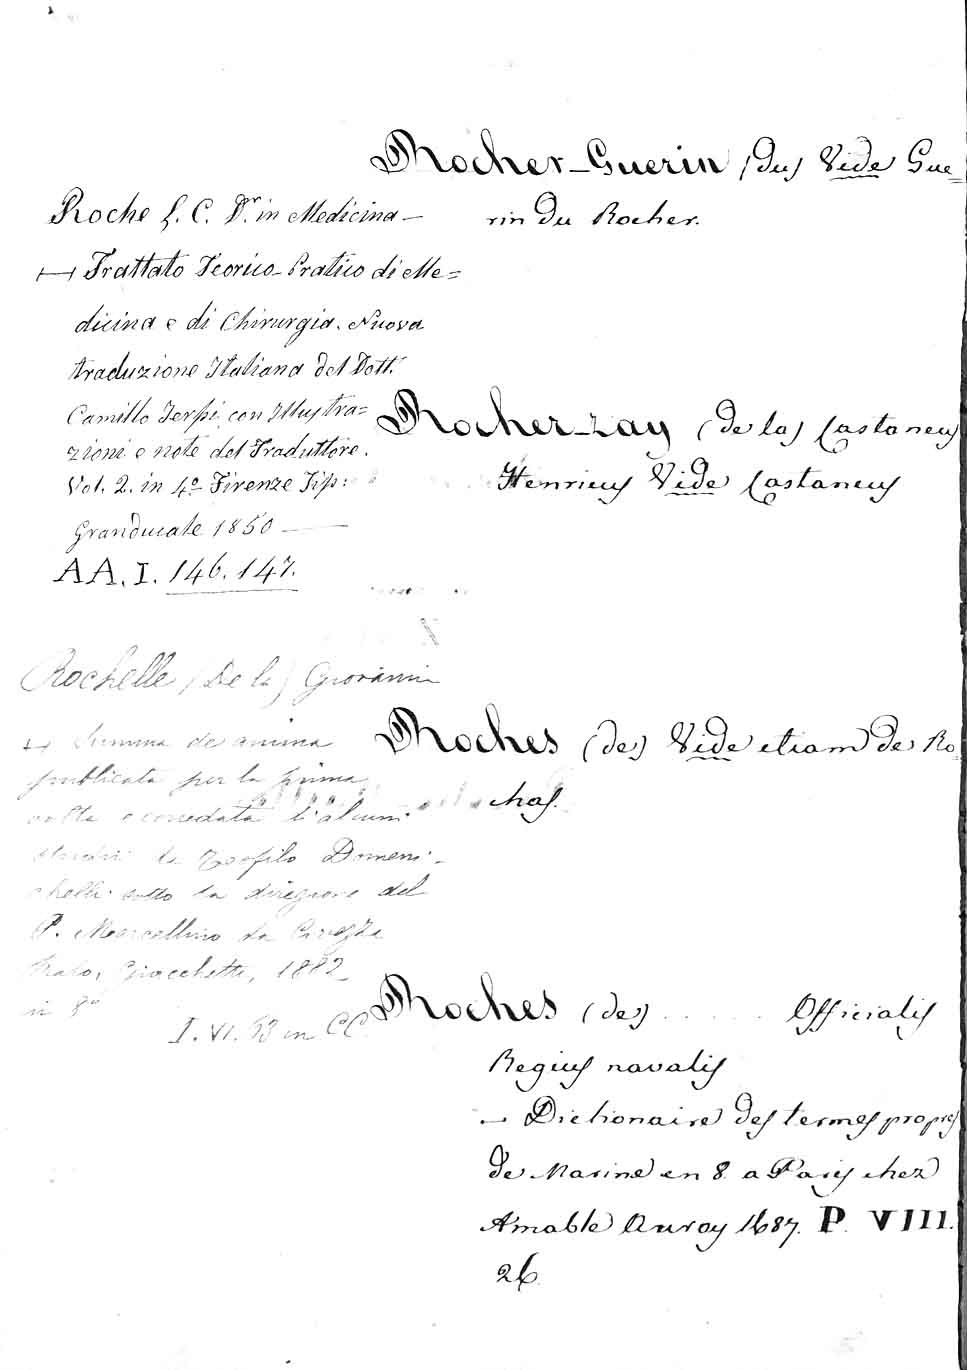 Roche L. C. Dr. in Medicina —
⊢ Trattato Teorico-Pratico di Me=
dicina e di Chirurgia. Nuova
traduzione Italiana del Dott.
Camillo con Illustra=
zioni e note del Traduttore.
Vol. 2. in 4º Firenze Tip:
Granducale 1850 —
AA. I. 146. 147.
Rochelle (De la) Giovanni
⊢ Summa de anima
pubblicata per la prima
volta e corredata d'alcuni
studii da Teofilo Domeni-
chelli sotto la direzione del
P. Marcellino da Civezza
Prato, Giacchetti, 1882
in 8º
I. VI. 53 in CC.
Rocher-Guerin (du) Vide Gue=
rin du Rocher.
Rocher-zay (de la) Castaneus
Henricus Vide Castaneus
Roches (des) Vide etiam de Ro
has.
Roches (des) . . . . . Officialis
Regius navalis
— Dictionaire des termes propres
de Marine en 8. a Paris chez
Amable Auroy 1687. P. VIII.
26.